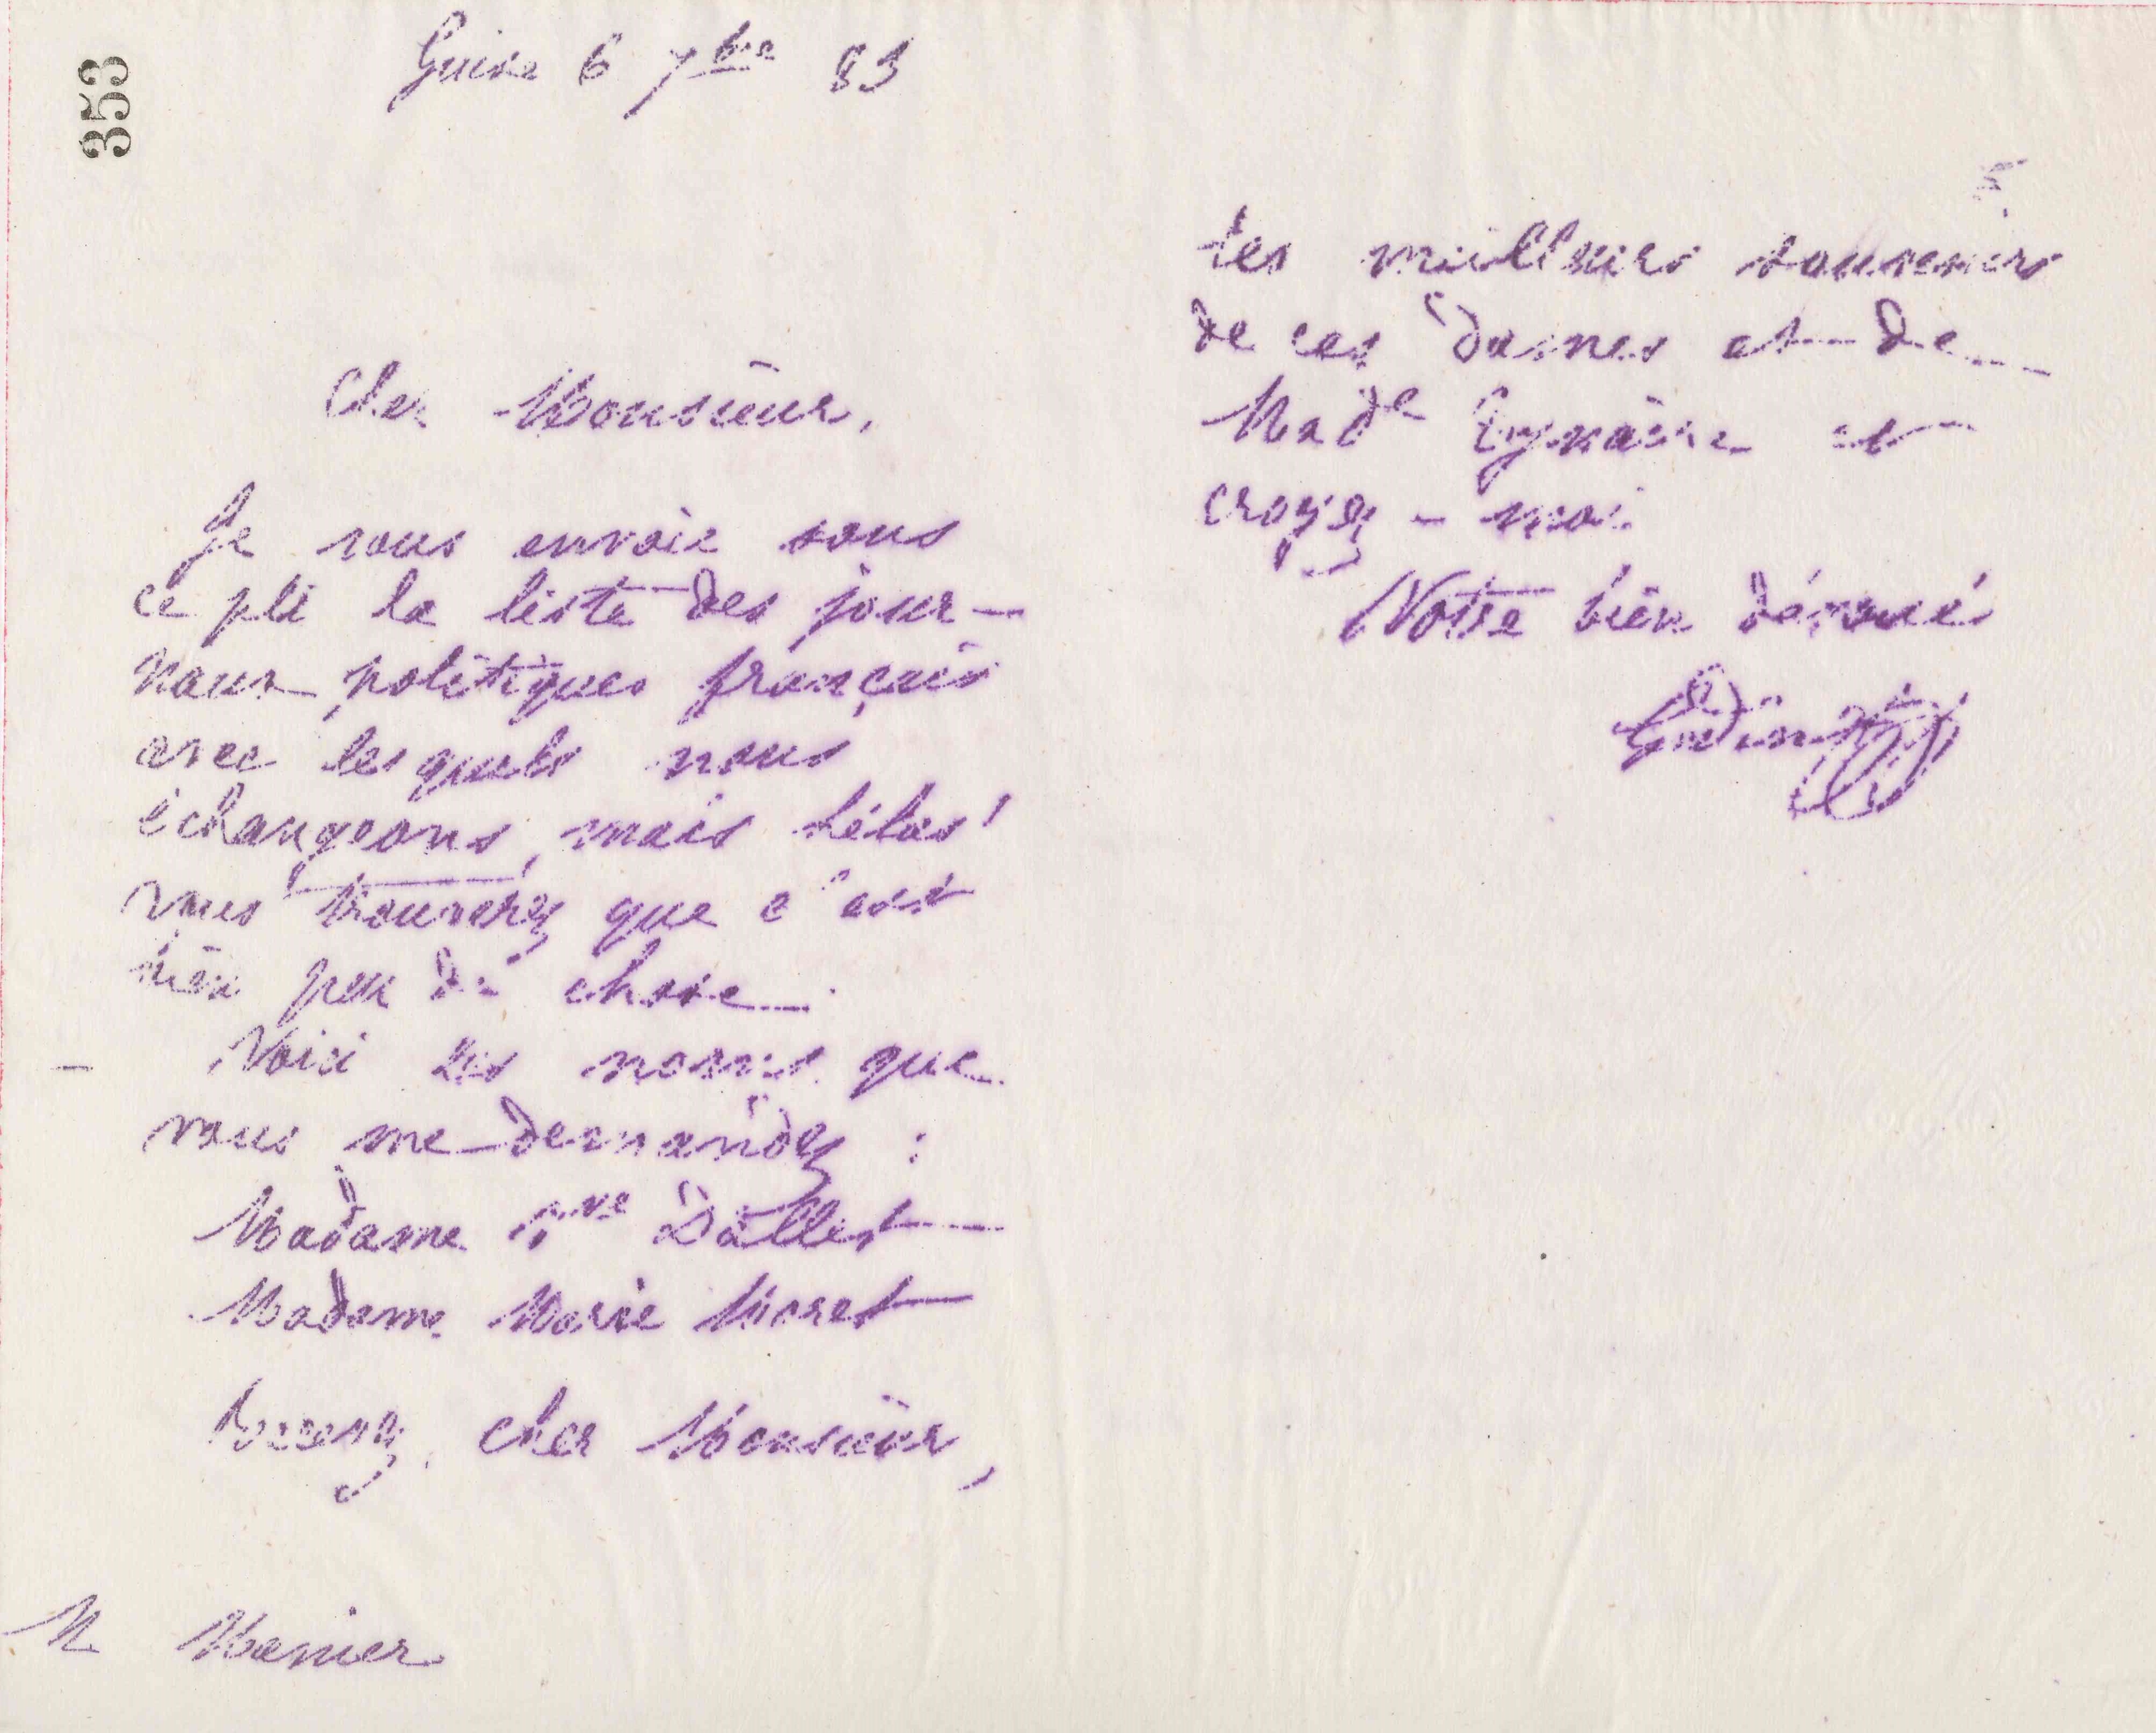 353
Guise 6 7bre 83
Cher Monsieur,
Je vous envoie sous
ce pli la liste des jour-
naux politiques français
avec lesquels nous
échangeons, mais hélas!
vous trouverez que c'est
bien peu de chose.
Voici les noms que
vous me demandez :
Madame Vve Dallet
Madame Marie Moret
Recevez, cher Monsieur,
M Manier
les meilleurs souvenirs
de ces dames et de
Made Cynaire et
croyez-moi
Votre bien dévoué
Godin